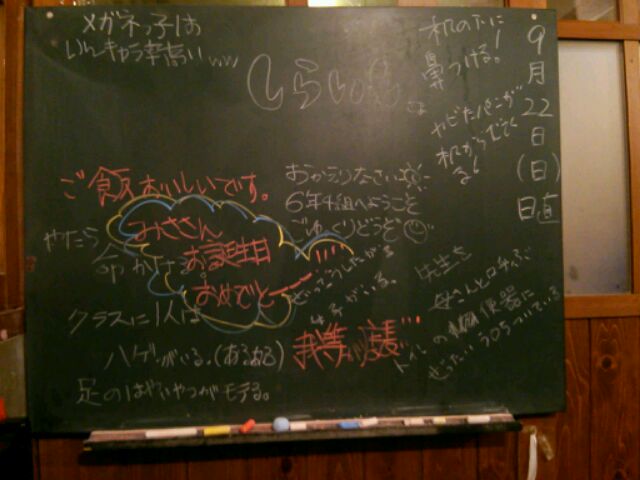 9月22日(日)
日直
机の下に
鼻つける!
カビたパンが
机からでてく
る!
しらい
メガネっ子は
いんきゃら率高いww
ご飯おいしいです。
おかえりなさい
6年4組へようこそ
ごゆっくりどうぞ
みささん
お誕生日
おめでとー
やたら
命かける
クラスに1人は
ハゲがいる。(あるある)
足のはやいやつがモテる。
がいる。
我等が
先生を
母さんとロチゃぶ
トイレの
便器に
ぜったい うろちついている